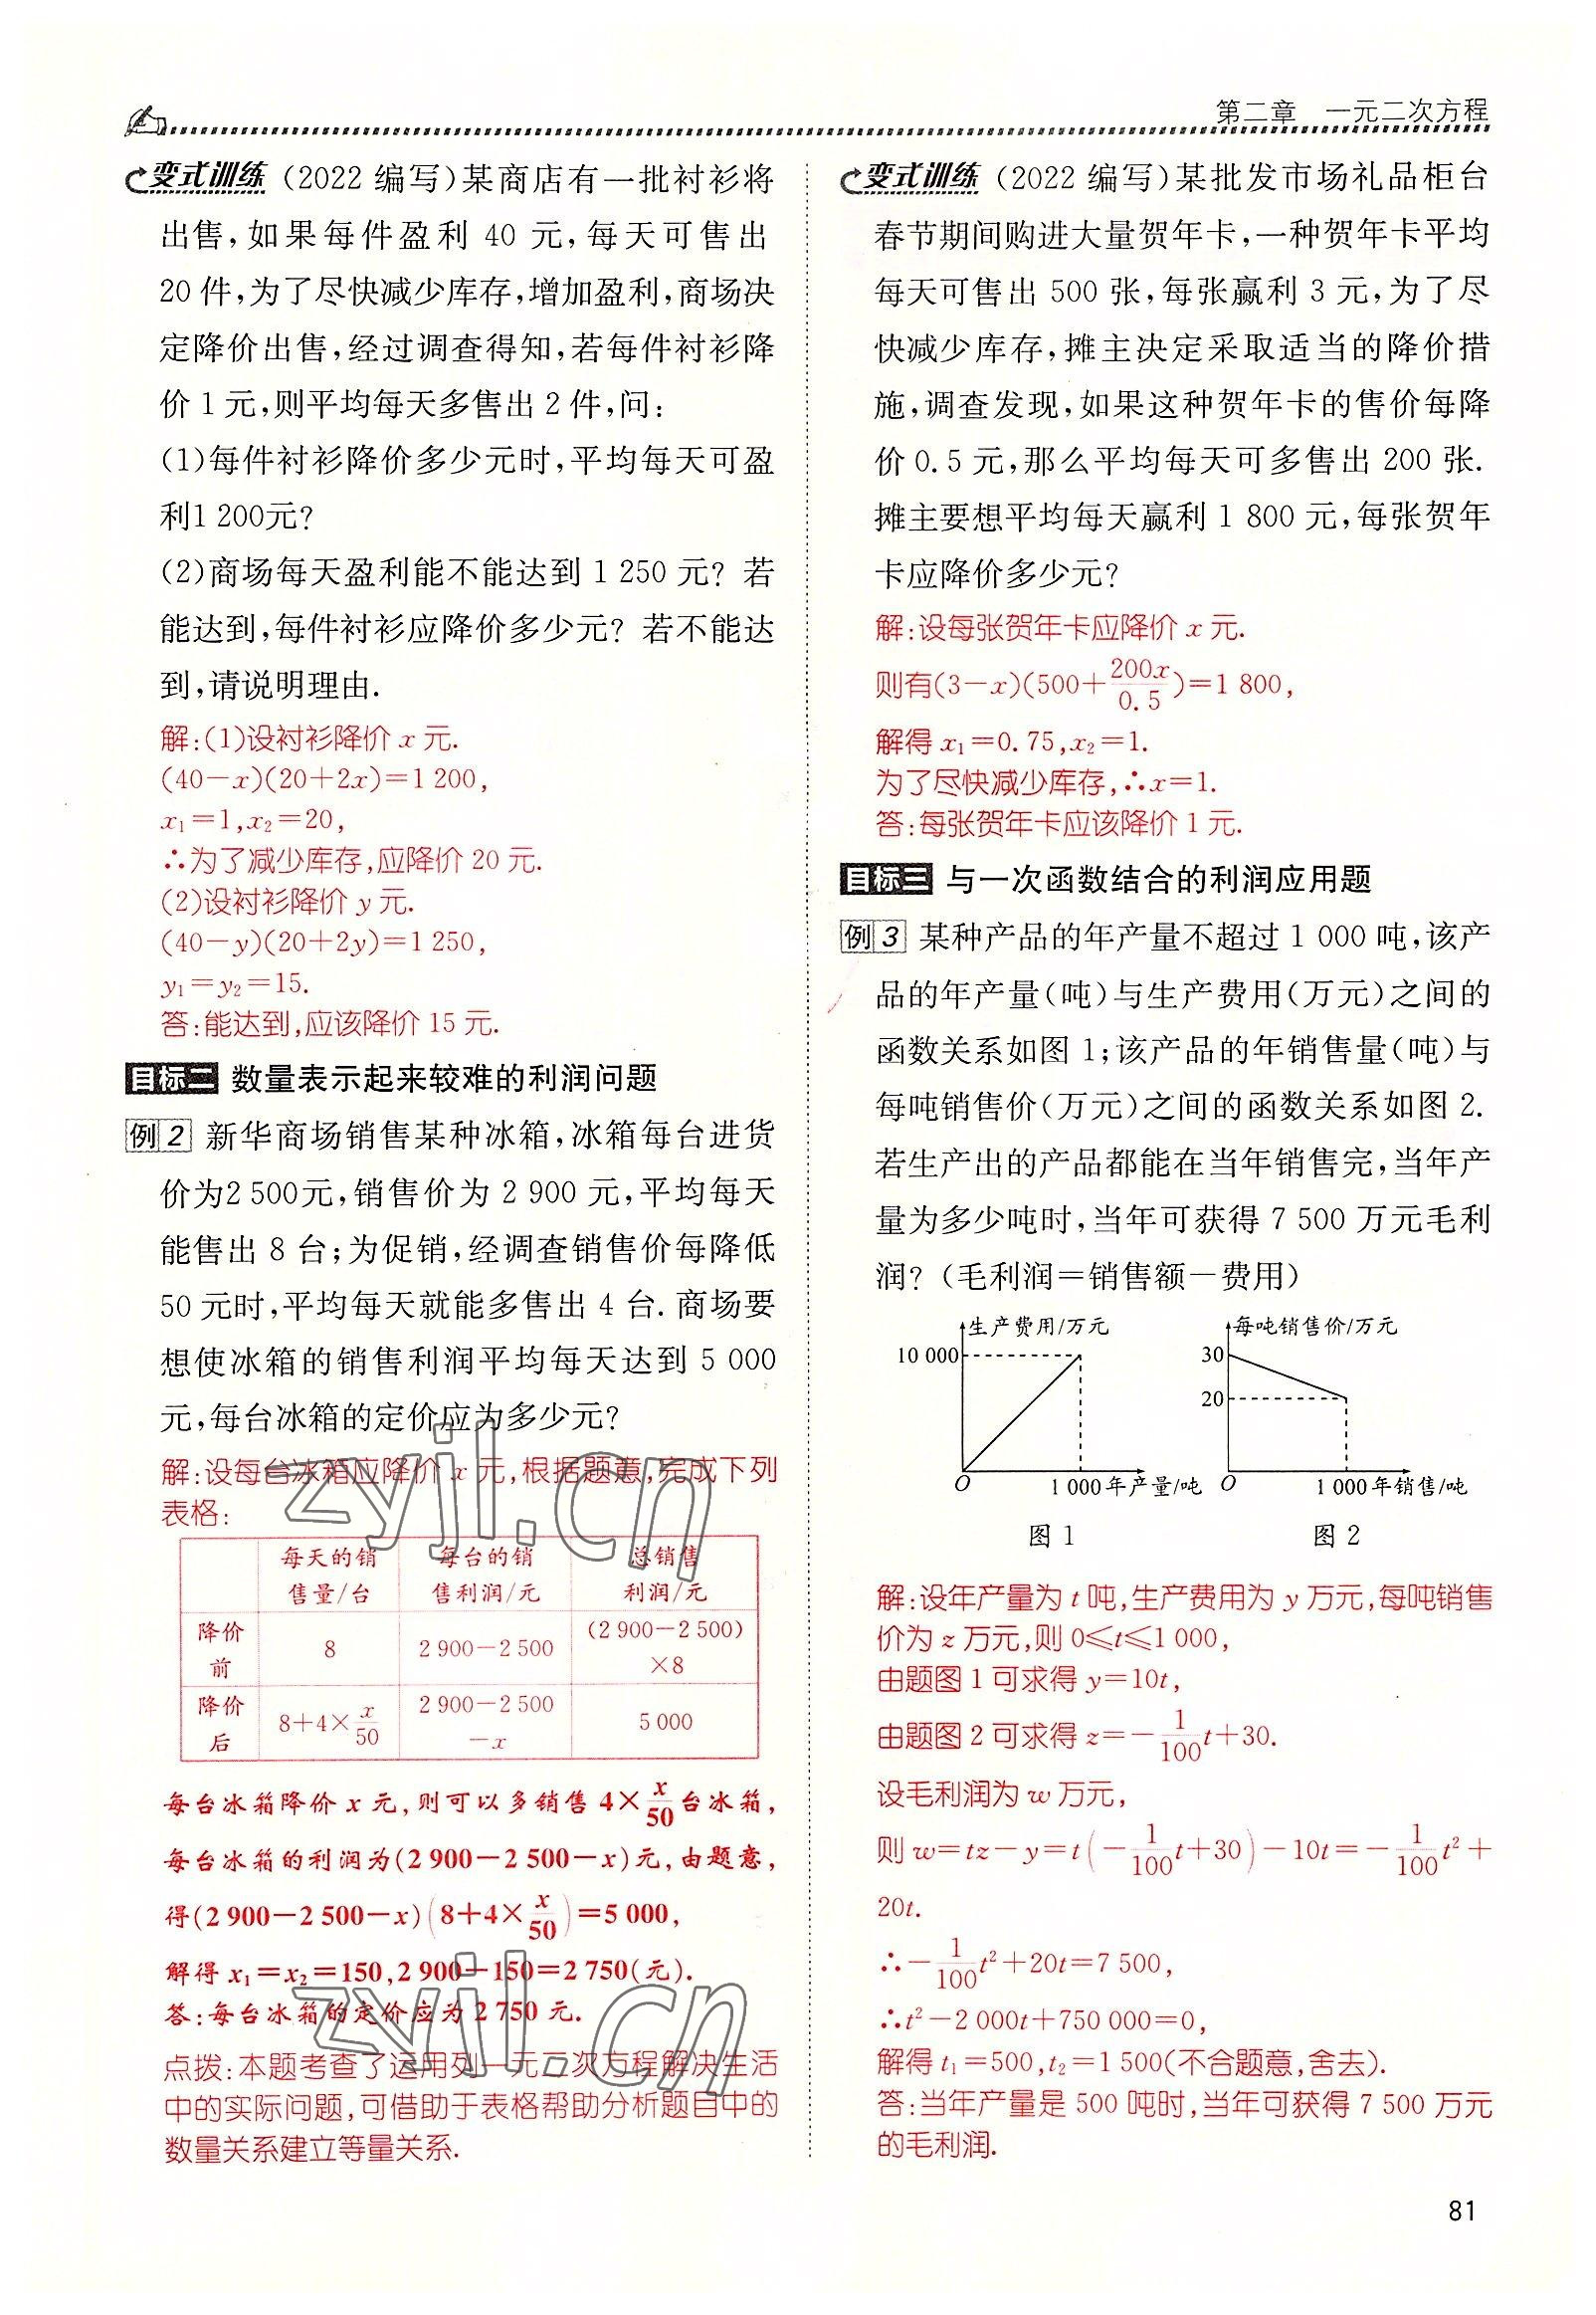 第二章 一元二次方程
变式训练 (2022 编写)某商店有一批衬衫将
出售,如果每件盈利 40 元,每天可售出
20 件,为了尽快减少库存,增加盈利,商场决
定降价出售,经过调查得知,若每件衬衫降
价 1 元,则平均每天多售出 2 件,问:
(1)每件衬衫降价多少元时,平均每天可盈
利1 200元?
(2)商场每天盈利能不能达到 1 250 元? 若
能达到,每件衬衫应降价多少元? 若不能达
到,请说明理由.
解:(1)设衬衫降价 x 元.
(40-x)(20+2x)=1 200,
x₁=1,x₂=20,
∴为了减少库存,应降价 20 元.
(2)设衬衫降价 y 元.
(40-y)(20+2y)=1 250,
y₁=y₂=15.
答:能达到,应该降价 15 元.
目标二 数量表示起来较难的利润问题
例 2 新华商场销售某种冰箱,冰箱每台进货
价为2 500元,销售价为 2 900 元,平均每天
能售出 8 台;为促销,经调查销售价每降低
50 元时,平均每天就能多售出 4 台. 商场要
想使冰箱的销售利润平均每天达到 5 000
元,每台冰箱的定价应为多少元?
解:设每台冰箱应降价 x 元,根据题意,完成下列
表格:
每天的销售量/台 每台的销售利润/元 总销售利润/元
降价前 8 2 900-2 500 (2 900-2 500)×8
降价后 8+4×x/50 2 900-2 500-x 5 000
每台冰箱降价 x 元,则可以多销售 4×x/50台冰箱,
每台冰箱的利润为(2 900-2 500-x)元,由题意,
得(2 900-2 500-x)(8+4×x/50)=5 000,
解得 x₁=x₂=150,2 900-150=2 750(元).
答:每台冰箱的定价应为 2 750 元.
点拨:本题考查了运用列一元二次方程解决生活
中的实际问题,可借助于表格帮助分析题目中的
数量关系建立等量关系.
zyjl.cn
zyjl.cn
变式训练 (2022 编写)某批发市场礼品柜台
春节期间购进大量贺年卡,一种贺年卡平均
每天可售出 500 张,每张赢利 3 元,为了尽
快减少库存,摊主决定采取适当的降价措
施,调查发现,如果这种贺年卡的售价每降
价0.5 元,那么平均每天可多售出 200 张.
摊主要想平均每天赢利 1 800 元,每张贺年
卡应降价多少元?
解:设每张贺年卡应降价 x 元.
则有(3-x)(500+200x/0.5)=1 800,
解得 x₁=0.75,x₂=1.
为了尽快减少库存,∴x=1.
答:每张贺年卡应该降价 1 元.
目标三 与一次函数结合的利润应用题
例 3 某种产品的年产量不超过 1 000 吨,该产
品的年产量(吨)与生产费用(万元)之间的
函数关系如图 1;该产品的年销售量(吨)与
每吨销售价(万元)之间的函数关系如图 2.
若生产出的产品都能在当年销售完,当年产
量为多少吨时,当年可获得 7 500 万元毛利
润? (毛利润=销售额-费用)
生产费用/万元
10 000
O 1 000 年产量/吨
图 1
每吨销售价/万元
30
20
O 1 000 年销售/吨
图 2
解:设年产量为 t 吨,生产费用为 y 万元,每吨销售
价为 z 万元,则 0≤t≤1 000,
由题图 1 可求得 y=10t,
由题图 2 可求得 z=-1/100t+30.
设毛利润为 w 万元,
则 w=tz-y=t(-1/100t+30)-10t=-1/100t²+
20t.
∴-1/100t²+20t=7 500,
∴t²-2 000t+750 000=0,
解得 t₁=500,t₂=1 500(不合题意,舍去).
答:当年产量是 500 吨时,当年可获得 7 500 万元
的毛利润.
81